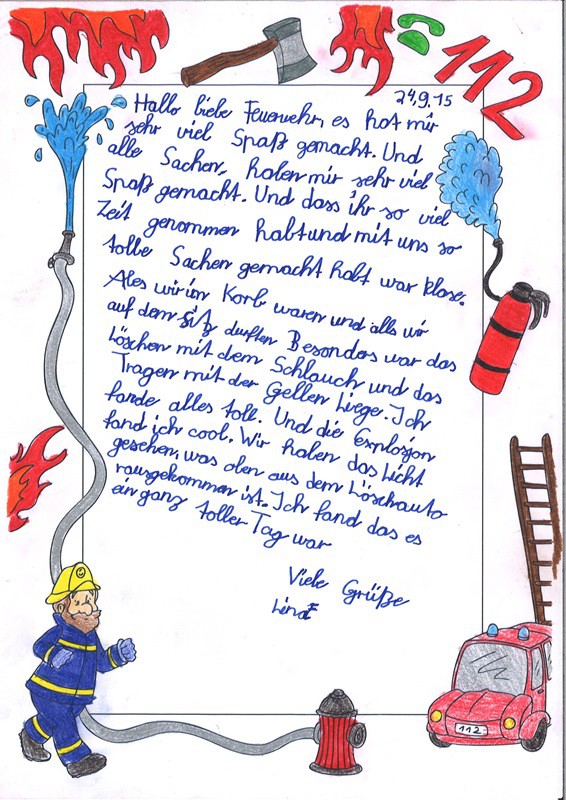 112
24.9.15
Hallo liebe Feuerwehr, es hat mir
sehr viel Spaß gemacht. Und
alle Sachen, haben mir sehr viel
Spaß gemacht. Und dass ihr so viel
Zeit genommen habt und mit uns so
tolle Sachen gemacht habt war klase.
Ales wir im Korb waren und alls wir
auf dem sitz durften Besonders war das
Löschen mit dem Schlauch und das
Tragen mit der Gelben Liege. Ich
fande alles toll. Und die Explosion
fand ich cool. Wir haben das Licht
gesehen, was oben aus dem Löschauto
rausgekommen ist. Ich fand das es
ein ganz toller Tag war
Viele Grüße
112